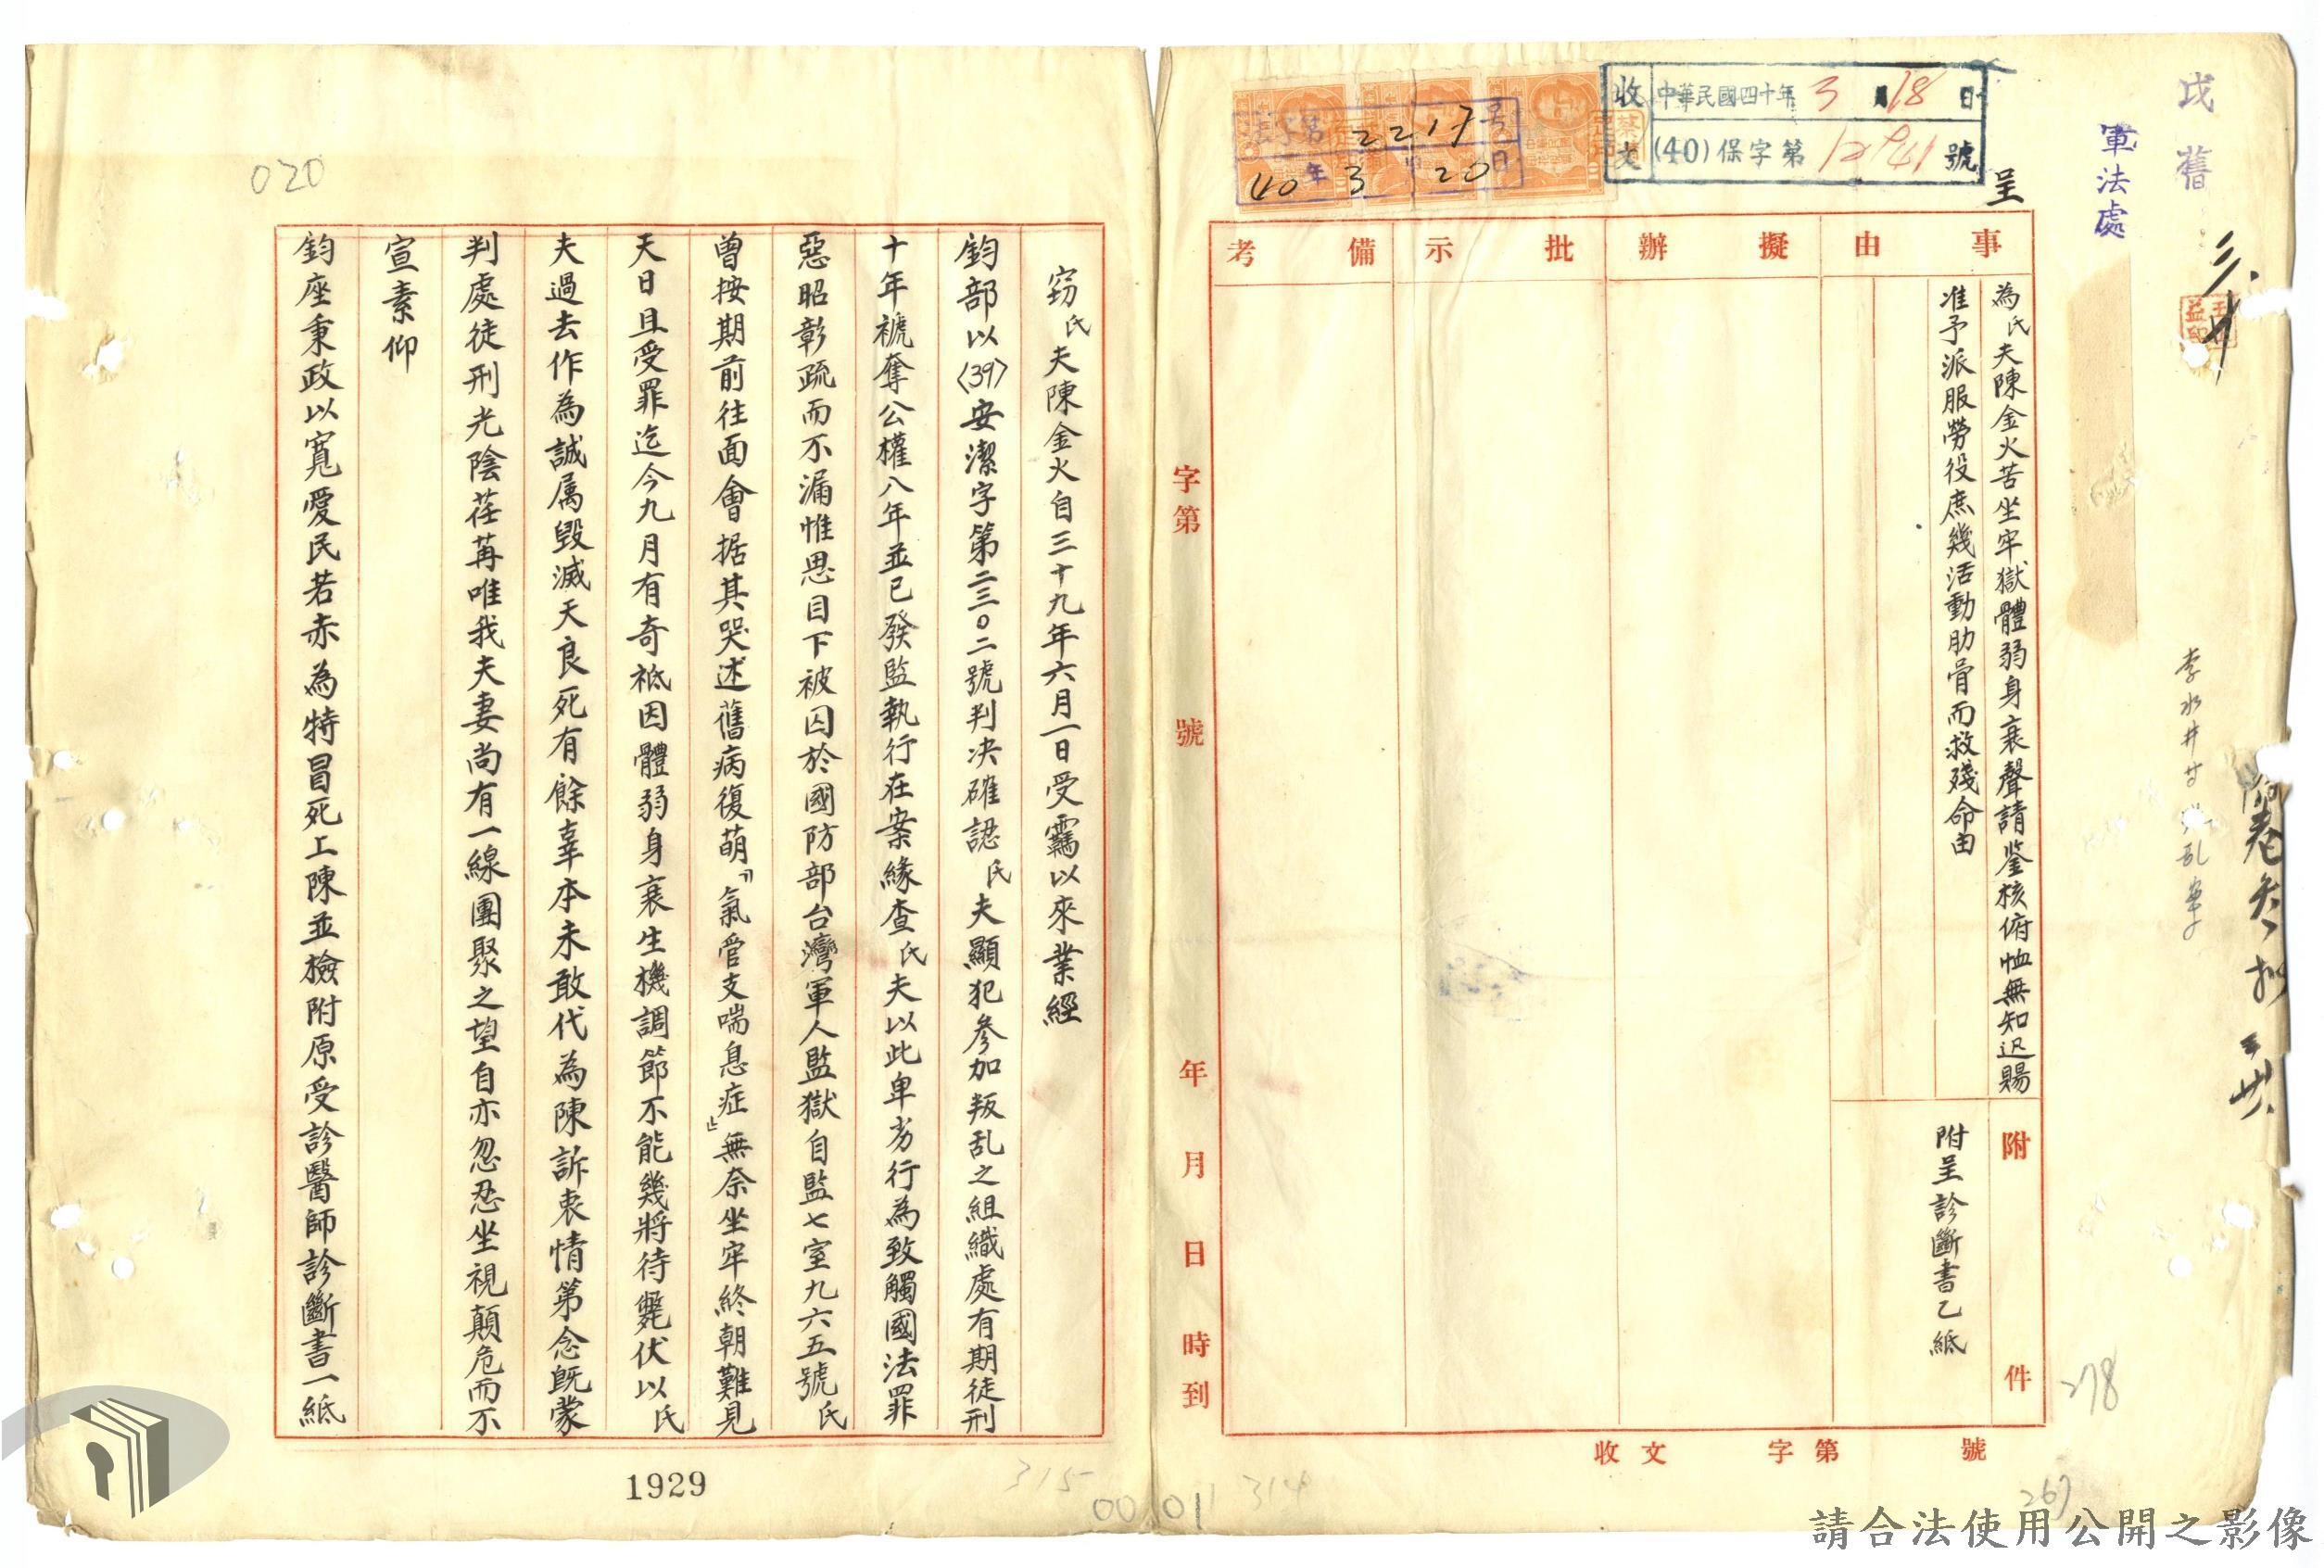 戊 舊
軍法處
呈
收文
中華民國四十年 3 月 18 日
(40)保字第 號
2217
40年 3 20日
事由
擬辦
批示
備考
為氏夫陳金火苦坐牢獄體弱身衰聲請鉴核俯恤無知迟賜
准予派服勞役庶幾活動肋骨而救殘命由
附件
附呈診斷書乙紙
收文 字第 號
字第 號
年 月 日 時到
278
267
314
竊氏夫陳金火自三十九年六月一日受羈以來業經
鈞部以〈39〉安潔字第二三〇二號判決確認氏夫顯犯參加叛乱之組織處有期徒刑
十年褫奪公權八年並已發監執行在案緣查氏夫以此卑劣行為致觸國法罪
惡昭彰疏而不漏惟思目下被囚於國防部部台灣軍人監獄自監七室九六五號氏
曾按期前往面會据其哭述舊病復萌「氣管支喘息症」無奈坐牢終朝難見
天日且受罪迄今九月有奇袛因體弱身衰生機調節不能幾將待斃伏以氏
夫過去作為誠属毀滅天良死有餘辜本未敢代為陳訴衷情第念既蒙
判處徒刑光陰荏苒唯我夫妻尚有一線團聚之望自亦忍忍坐視顛危而不
宣素仰
鈞座秉政以寬愛民若赤為特冒死上陳並檢附原受診醫師診斷書一紙
020
1929
315
00 011
請合法使用公開之影像